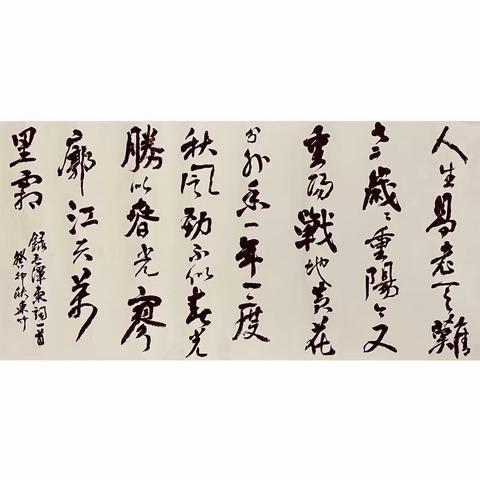 人生易老天難
老歲々重陽今又
重陽戰地黄花
分外香一年一度
秋風勁不似春光
勝似春光寥
廓江天萬
里霜
錄毛澤東詞一首
癸卯秋